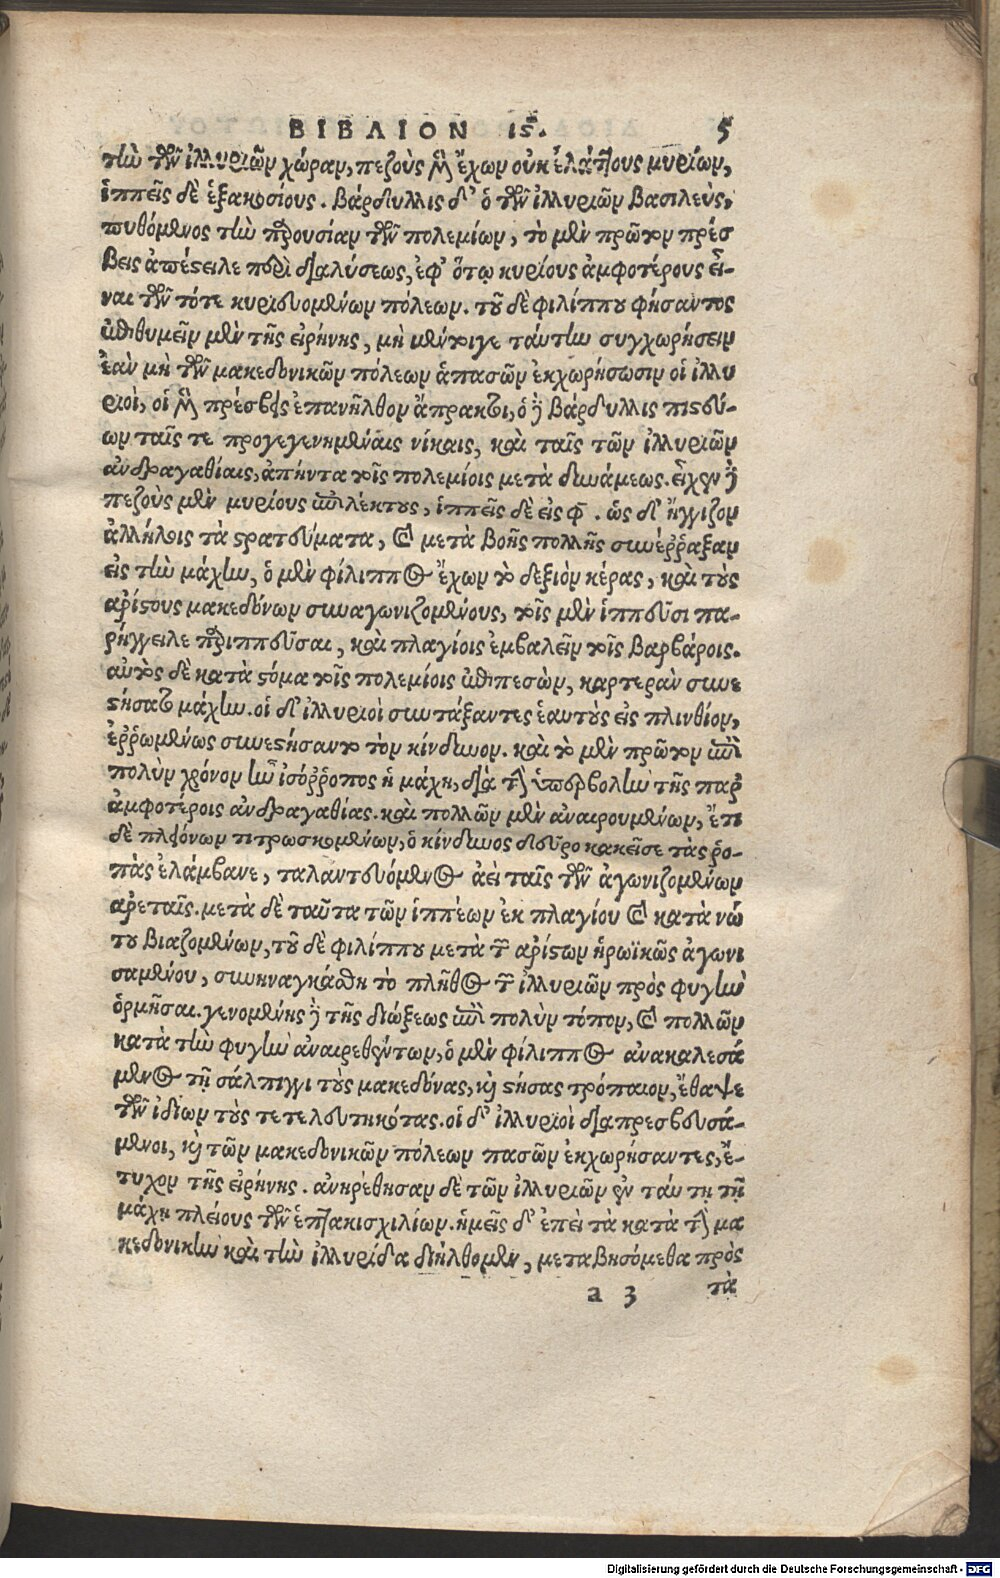 ΒΙΒΛΙΟΝ ις. 5
τὴν τῶν ἰλλυριῶν χώραν, πεζοὺς μὲν ἔχων οὐκ ἐλάττους μυρίων,
ἱππεῖς δὲ ἑξακοσίους. Βάρδυλλις δ' ὁ τῶν ἰλλυριῶν βασιλεὺς,
πυθόμενος τὴν παρουσίαν τῶν πολεμίων, τὸ μὲν πρῶτον πρέσ
βεις ἀπέστειλε περὶ διαλύσεως, ἐφ' ὅτῳ κυρίους ἀμφοτέρους εἶ-
ναι τῶν τότε κυριευομένων πόλεων. τοῦ δὲ φιλίππου φήσαντος
ἐπιθυμεῖν μὲν τῆς εἰρήνης, μὴ μέντοιγε ταύτην συγχωρήσειν
ἐὰν μὴ τῶν μακεδονικῶν πόλεων ἁπασῶν ἐκχωρήσωσιν οἱ ἰλλυ
ριοὶ, οἱ μὲν πρέσβεις ἐπανῆλθον ἄπρακτοι, ὁ δὲ βάρδυλλις πιστεύ-
ων ταῖς τε προγεγενημέναις νίκαις, καὶ ταῖς τῶν ἰλλυριῶν
ἀνδραγαθίαις, ἀπήντα τοῖς πολεμίοις μετὰ δυνάμεως. εἶχεν δὲ
πεζοὺς μὲν μυρίους ἐπιλέκτους, ἱππεῖς δὲ εἰς φ. ὡς δ' ἤγγιζον
ἀλλήλοις τὰ στρατεύματα, καὶ μετὰ βοῆς πολλῆς συνέῤῥαξαν
εἰς τὴν μάχην, ὁ μὲν φίλιππος ἔχων τὸ δεξιὸν κέρας, καὶ τοὺς
ἀρίστους μακεδόνων συναγωνιζομένους, τοῖς μὲν ἱππεῦσι πα-
ρήγγειλε παριππεῦσαι, καὶ πλαγίοις ἐμβαλεῖν τοῖς βαρβάροις.
αὐτὸς δὲ κατὰ στόμα τοῖς πολεμίοις ἐπιπεσὼν, καρτερὰν συνε
στήσατο μάχην. οἱ δ' ἰλλυριοὶ συντάξαντες ἑαυτοὺς εἰς πλινθίον,
ἐῤῥωμένως συνεστήσαντο τὸν κίνδυνον. καὶ τὸ μὲν πρῶτον ἐπὶ
πολὺν χρόνον ἦν ἰσόῤῥοπος ἡ μάχη, διὰ τὴν ὑπερβολὴν τῆς παρ'
ἀμφοτέροις ἀνδραγαθίας. καὶ πολλῶν μὲν ἀναιρουμένων, ἔτι
δὲ πλειόνων τιτρωσκομένων, ὁ κίνδυνος δεῦρο κακεῖσε τὰς ῥο-
πὰς ἐλάμβανε, ταλαντευόμενος ἀεὶ ταῖς τῶν ἀγωνιζομένων
ἀρεταῖς. μετὰ δὲ ταῦτα τῶν ἱππέων ἐκ πλαγίου καὶ κατὰ νώ
του βιαζομένων, τοῦ δὲ φιλίππου μετὰ τῶν ἀρίστων ἡρωϊκῶς ἀγωνι
σαμένου, συνηναγκάσθη τὸ πλῆθος τῶν ἰλλυριῶν πρὸς φυγὴν
ὁρμῆσαι. γενομένης δὲ τῆς διώξεως ἐπὶ πολὺν τόπον, καὶ πολλῶν
κατὰ τὴν φυγὴν ἀναιρεθέντων, ὁ μὲν φίλιππος ἀνακαλεσά
μενος τῇ σάλπιγγι τοὺς μακεδόνας, καὶ στήσας τρόπαιον, ἔθαψε
τῶν ἰδίων τοὺς τετελευτηκότας. οἱ δ' ἰλλυριοὶ διαπρεσβευσά-
μενοι, καὶ τῶν μακεδονικῶν πόλεων πασῶν ἐκχωρήσαντες, ἔ-
τυχον τῆς εἰρήνης. ἀνηρέθησαν δὲ τῶν ἰλλυριῶν ἐν ταύτῃ τῇ
μάχῃ πλείους τῶν ἑπτακισχιλίων. ἡμεῖς δ' ἐπεὶ τὰ κατὰ τὴν μα
κεδονικὴν καὶ τὴν ἰλλυρίδα διήλθομεν, μεταβησόμεθα πρὸς
a 3 τὰ
Digitalisierung gefördert durch die Deutsche Forschungsgemeinschaft - DFG